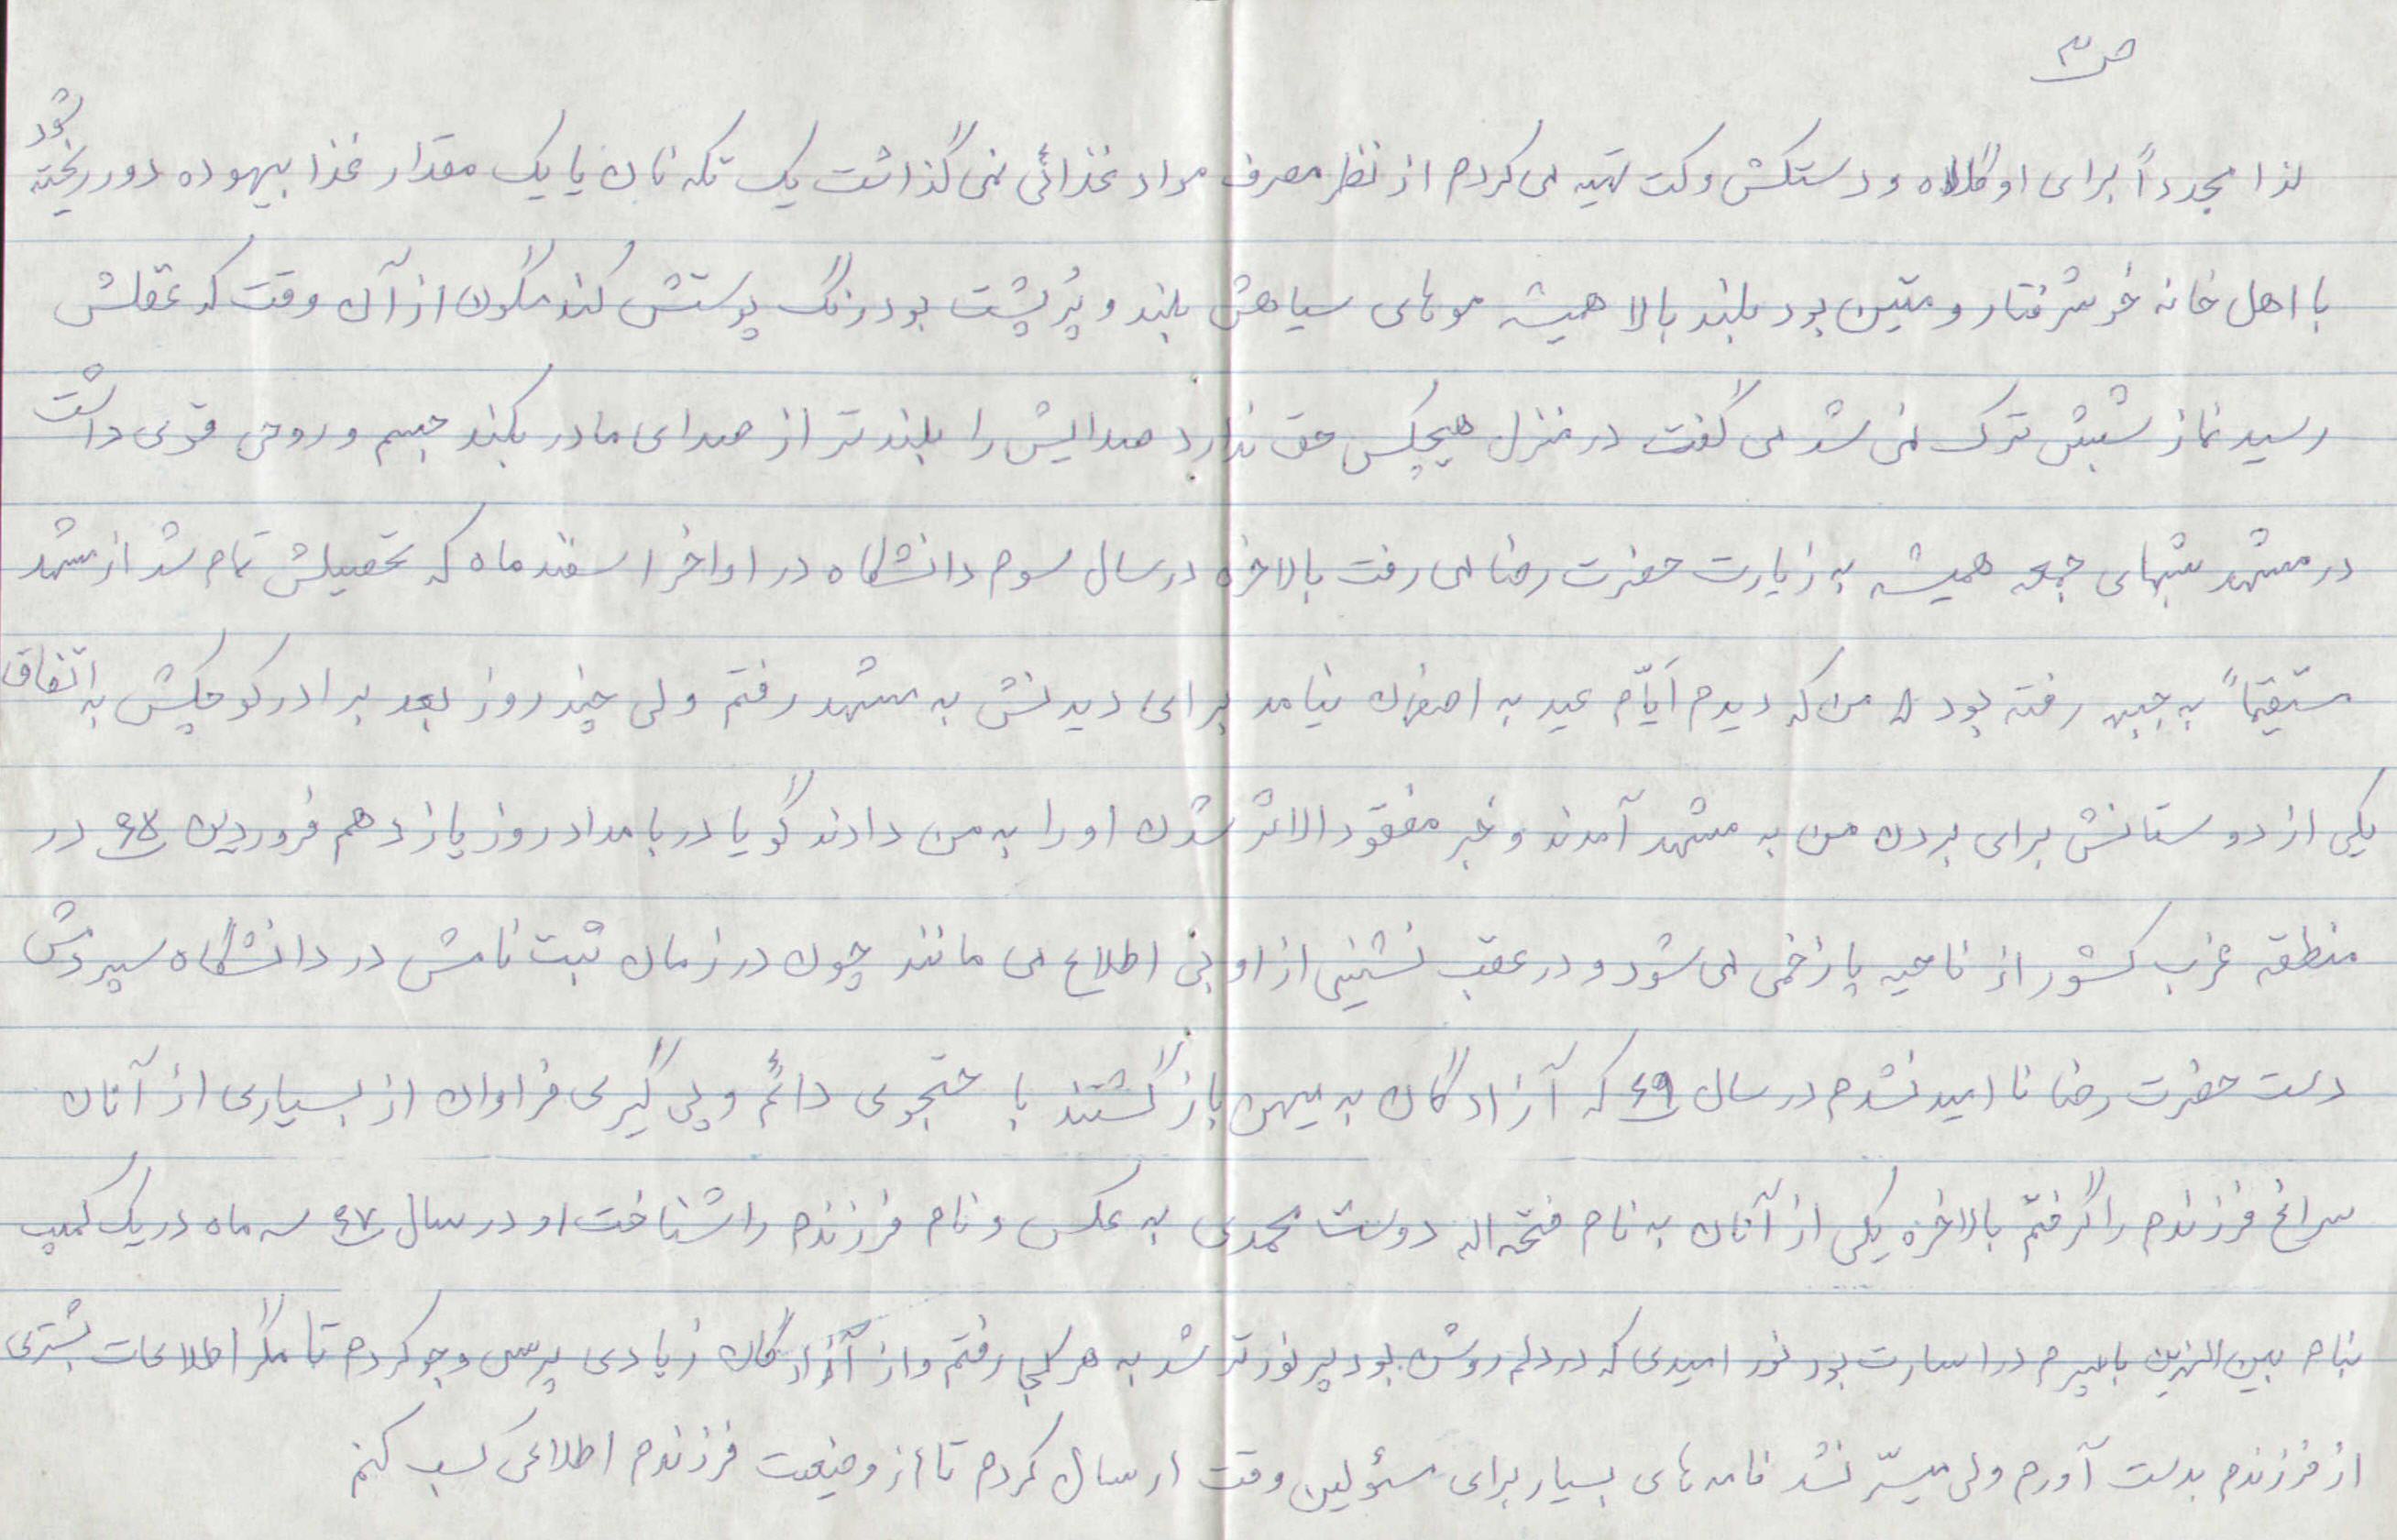 ص ۳
لذا مجدداً برای او کلاه و دستکش و کت تهیه می کردم از نظر مصرف مواد غذائی نمی گذاشت یک تکه نان یا یک مقدار غذا بیهوده دور ریخته شود
با اهل خانه خوشرفتار و متین بود بلند بالا همیشه موهای سیاهش بلند و پُرپشت بود رنگ پوستش گندمگون از آن وقت که عقلش
رسید نماز شبش ترک نمی شد می گفت در منزل هیچکس حق ندارد صدایش را بلندتر از صدای مادر بکند جسم و روحی قوی داشت
در مشهد شبهای جمعه همیشه به زیارت حضرت رضا می رفت بالاخره در سال سوم دانشگاه در اواخر اسفند ماه که تحصیلش تمام شد از مشهد
مستقیماً به جبهه رفته بود من که دیدم ایّام عید به اصفهان نیامد برای دیدنش به مشهد رفتم ولی چند روز بعد برادر کوچکش به اتفاق
یکی از دوستانش برای بردن من به مشهد آمدند و خبر مفقودالاثر شدن او را به من دادند گویا در بامداد روز پازدهم فروردین ۶۷ در
منطقه غرب کشور از ناحیه پا زخمی می شود و در عقب نشینی از او بی اطلاع می مانند چون در زمان ثبت نامش در دانشگاه سپردمش
دست حضرت رضا نا امید نشدم در سال ۶۹ که آزادگان به میهن بازگشتند با جتجوی دائم و پی گیری فراوان از بسیاری از آنان
سراغ فرزندم را گرفتم بالاخره یکی از آنان به نام فتح اله دوست محمدی به عکس و نام فرزندم را شناخت او در سال ۶۷ سه ماه در یک کمپ
بنام بین النهرین با پسرم در اسارت بود نور امیدی که در دلم روشن بود پر نورتر شد به هر کجا رفتم و از آزادگان زیادی پرس و جو کردم تا مگر اطلاعات بیشتری
از فرزندم بدست آورم ولی میسّر نشد نامه های بسیار برای مسئولین وقت ارسال کردم تا از وضیعت فرزندم اطلاعی کسب کنم